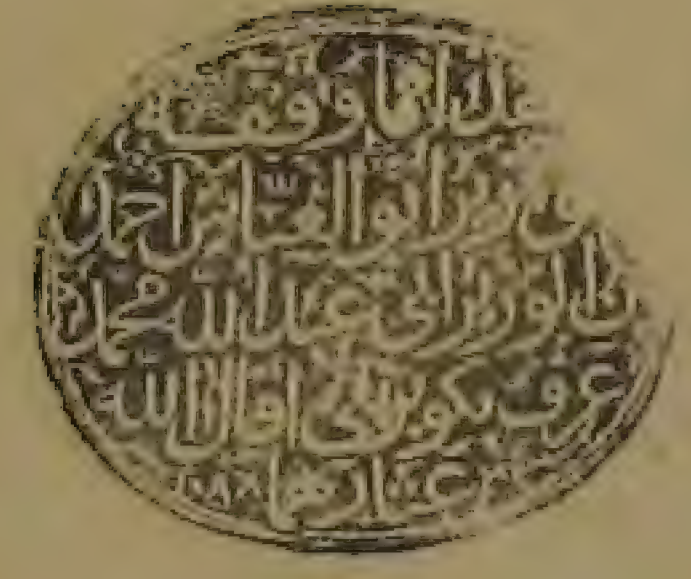 هذا ما وقفه
الوزير ابو العباس احمد
بن الوزير ابي عبد الله محمد
عرف بكوبرلي اقال الله
عثارهما